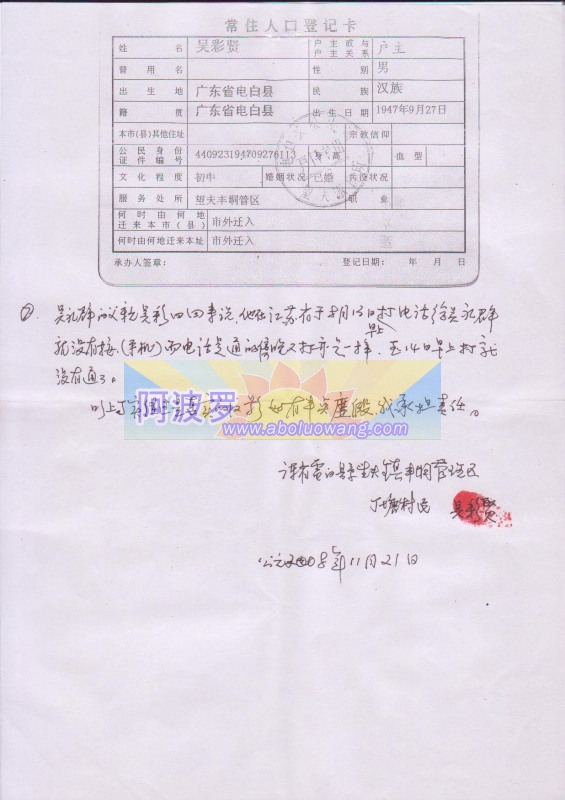 常住人口登记卡
姓名 吴彩贤 户主或与户主关系 户主
曾用名 性别 男
出生地 广东省电白县 民族 汉族
籍贯 广东省电白县 出生日期 1947年9月27日
本市(县)其他住址 宗教信仰
公民身份证件编号 440923194709276113 身高 血型
文化程度 初中 婚姻状况 已婚 兵役状况
服务处所 望夫丰垌管区 职业
何时由何地迁来本市(县) 市外迁入
何时由何地迁来本址 市外迁入
承办人签章: 登记日期: 年 月 日
② 吴永群的父亲吴彩 说,他在江苏省于8月13日早上打电话给吴永群
就没有接(手机)而电话是通的傍晚又打开是一样,至14日早上打就
没有通了。
以上 如有半点虚假 我承担责任。
阿波罗
www.aboluowang.com
镇丰垌管理区
塘村民 吴彩贤
公元2008年11月21日